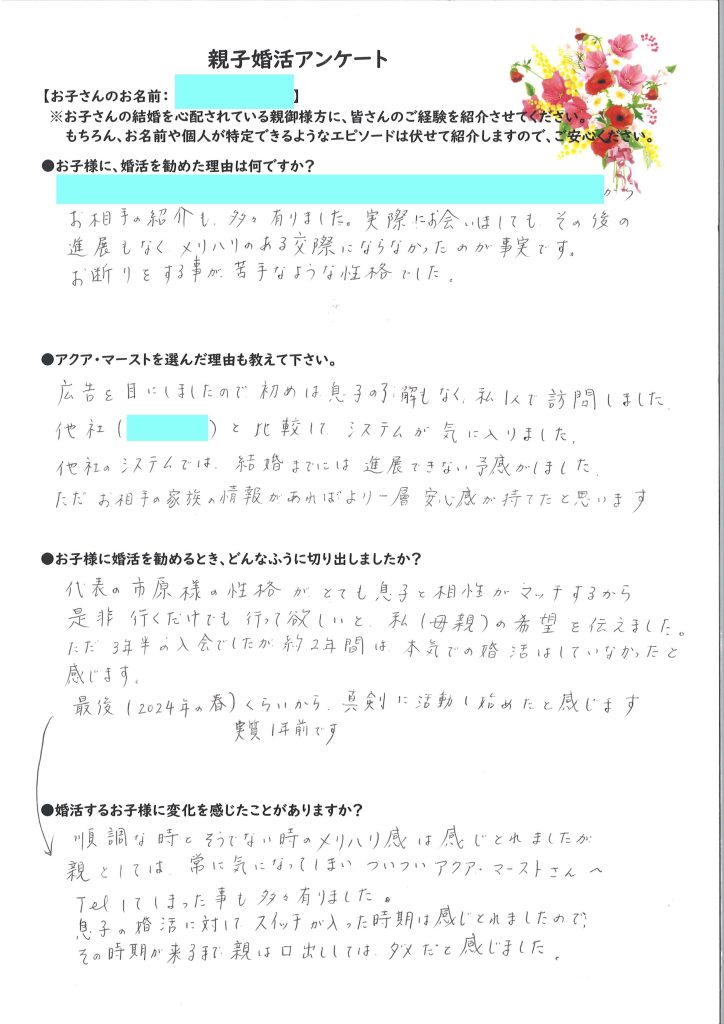 親子婚活アンケート
【お子さんのお名前： 】
※お子さんの結婚を心配されている親御様方に、皆さんのご経験を紹介させてください。
もちろん、お名前や個人が特定できるようなエピソードは伏せて紹介しますので、ご安心ください。
●お子様に、婚活を勧めた理由は何ですか？
から
お相手の紹介も、多々有りました。実際にお会いはしても、その後の
進展もなく、メリハリのある交際にならなかったのが事実です。
お断りをする事が、苦手なような性格でした。
●アクア・マーストを選んだ理由も教えて下さい。
広告を目にしましたので、初めは息子の了解もなく、私1人で訪問しました。
他社（ ）と比較して、システムが気に入りました。
他社のシステムでは、結婚までには進展できない予感がしました。
ただ、お相手の家族の情報があればより一層安心感が持てたと思います
●お子様に婚活を勧めるとき、どんなふうに切り出しましたか？
代表の市原様の性格が、とても息子と相性がマッチするから
是非行くだけでも行って欲しいと、私（母親）の希望を伝えました。
ただ3年半の入会でしたが約2年間は、本気での婚活はしていなかったと
感じます。
最後（2024年の春）くらいから、真剣に活動し始めたと感じます
実質1年前です
●婚活するお子様に変化を感じたことがありますか？
順調な時とそうでない時のメリハリ感は感じとれましたが
親としては、常に気になってしまいついついアクア・マーストさんへ
Telしてしまった事も多々有りました。
息子の婚活に対して、スイッチが入った時期は感じとれましたので、
その時期が来るまで、親は口出ししては、ダメだと感じました。